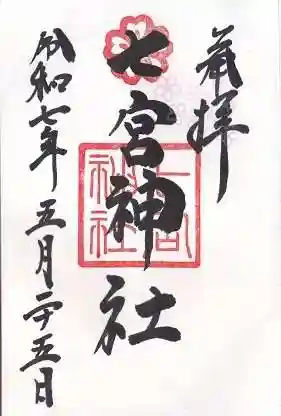 奉拝
七宮神社
七宮神社
令和七年五月二十五日